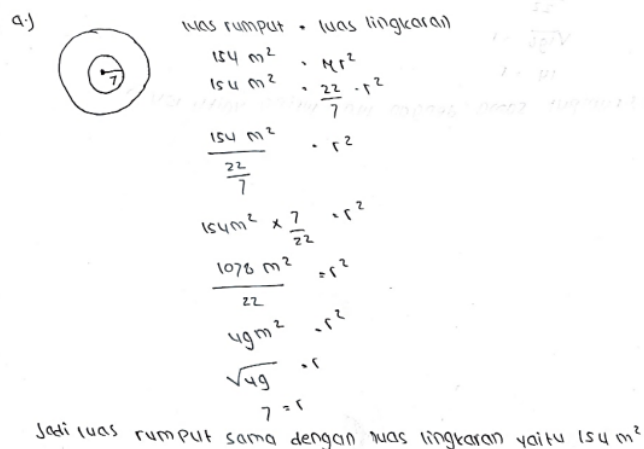 a.)
7
luas rumput = luas lingkaran
154 m² = πr²
154 m² = 22/7 · r²
154 m² / 22/7 = r²
154 m² × 7/22 = r²
1078 m² / 22 = r²
49 m² = r²
√49 = r
7 = r
Jadi luas rumput sama dengan luas lingkaran yaitu 154 m²